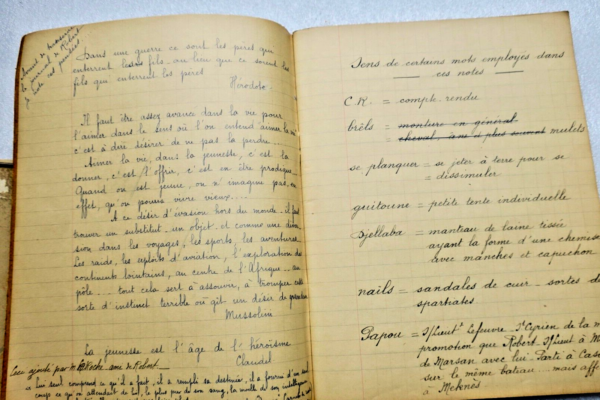 le journal de Robert
Dans une guerre ce sont les pères qui
enterrent leurs fils au lieu que ce soient les
fils qui enterrent les pères
Hérodote.
Il faut être assez avancé dans la vie pour
l'aimer dans le sens où l'on entend aimer la vie
c'est à dire désirer de ne pas la perdre.
Aimer la vie, dans la jeunesse, c'est la
donner, c'est l'offrir, c'est en être prodigue...
Quand on est jeune, on n'imagine pas, en
effet, qu'on pourra vivre vieux....
A ce désir d'évasion hors du monde, il faut
trouver un substitut, un objet, et comme une
sion dans les voyages, les sports, les aventures
Les raids, les exploits d'aviation, l'exploration des
continents lointains, au centre de l'Afrique... au
pôle.... tout cela sert à assouvir, à tromper cette
sorte d'instinct terrible où gît un désir de
Mussolini
La jeunesse est l'âge de l'héroïsme
Claudel
ajouté par de Robert
a lui seul comprend ce qu'il a fait, il a rempli sa destinée, il a fourni d'un seul
coup ce qu'on attendait de lui, le plus pur de son sang, la moelle de son intelligence
Sens de certains mots employés dans
ces notes
C.R. = compte-rendu
brêls = monture en général
= cheval, âne et plus souvent mulets
se planquer = se jeter à terre pour se
= dissimuler
guitoune = petite tente individuelle
Djellaba = manteau de laine tissée
ayant la forme d'une chemise
avec manches et capuchon
nails = sandales de cuir - sortes de
spartiates
Papou = S/Lieut. Lefeuvre St Cyrien de la m
promotion que Robert. S/Lieut à M
de Marsan avec lui. Parte à Cas
sur le même bateau... mais aff
à Meknès